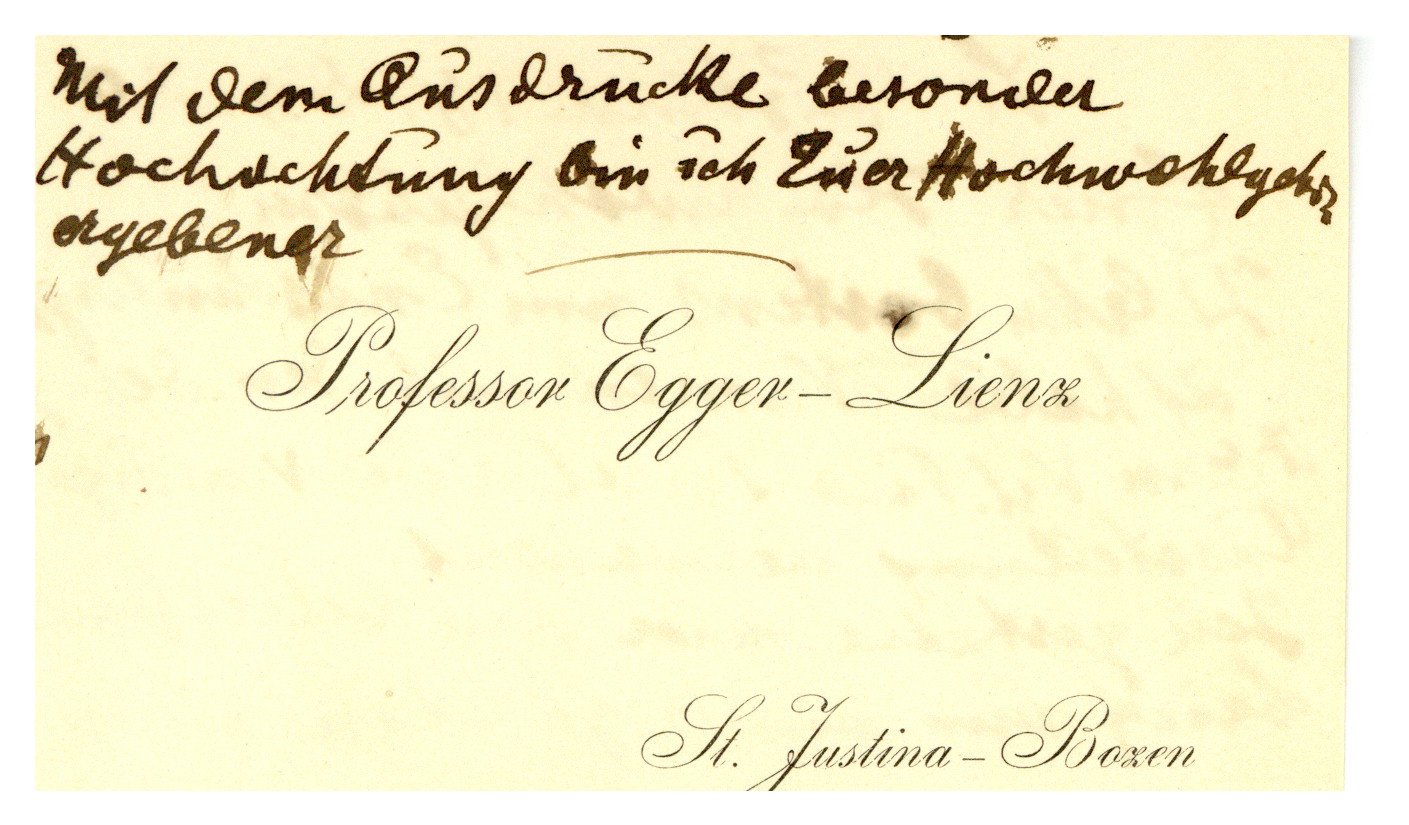 Mit dem Ausdrucke besonder
Hochachtung bin ich Euer Hochwohlgeb.
ergebener
Professor Egger – Lienz
St. Justina – Bozen